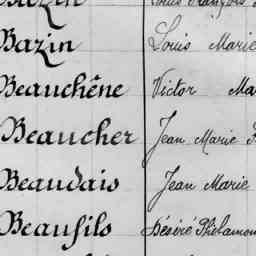 Bazin Louis Marie
Beauchêne Victor Ma
Beaucher Jean Marie
Beaudais Jean Marie
Beaufils Désiré Philamon